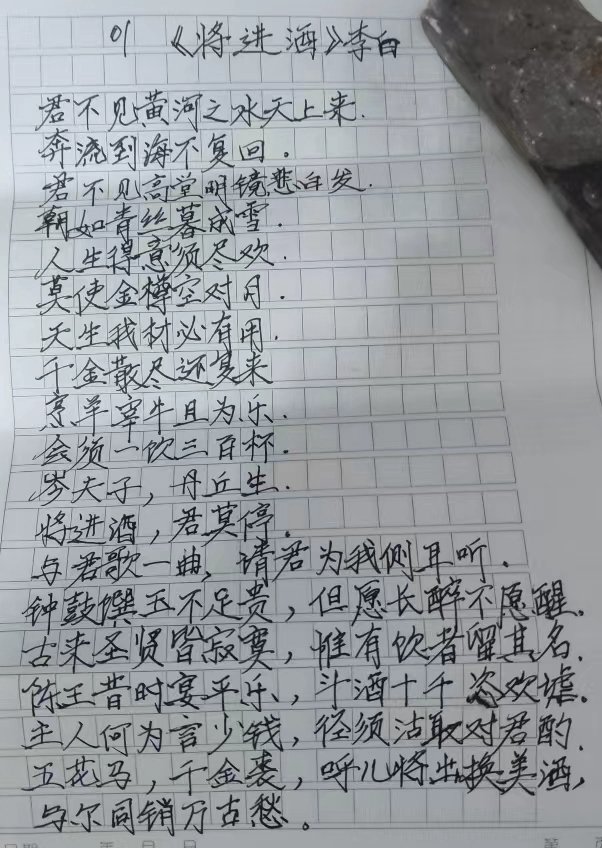 01 《将进酒》李白
君不见黄河之水天上来.
奔流到海不复回。
君不见高堂明镜悲白发.
朝如青丝暮成雪.
人生得意须尽欢.
莫使金樽空对月.
天生我材必有用.
千金散尽还复来
烹羊宰牛且为乐.
会须一饮三百杯.
岑夫子，丹丘生.
将进酒，君莫停.
与君歌一曲，请君为我侧耳听.
钟鼓馔玉不足贵，但愿长醉不愿醒.
古来圣贤皆寂寞，惟有饮者留其名.
陈王昔时宴平乐，斗酒十千恣欢墟.
主人何为言少钱，径须沽取对君酌.
五花马，千金裘，呼儿将出换美酒，
与尔同销万古愁。
日期 年 月 日 第 页